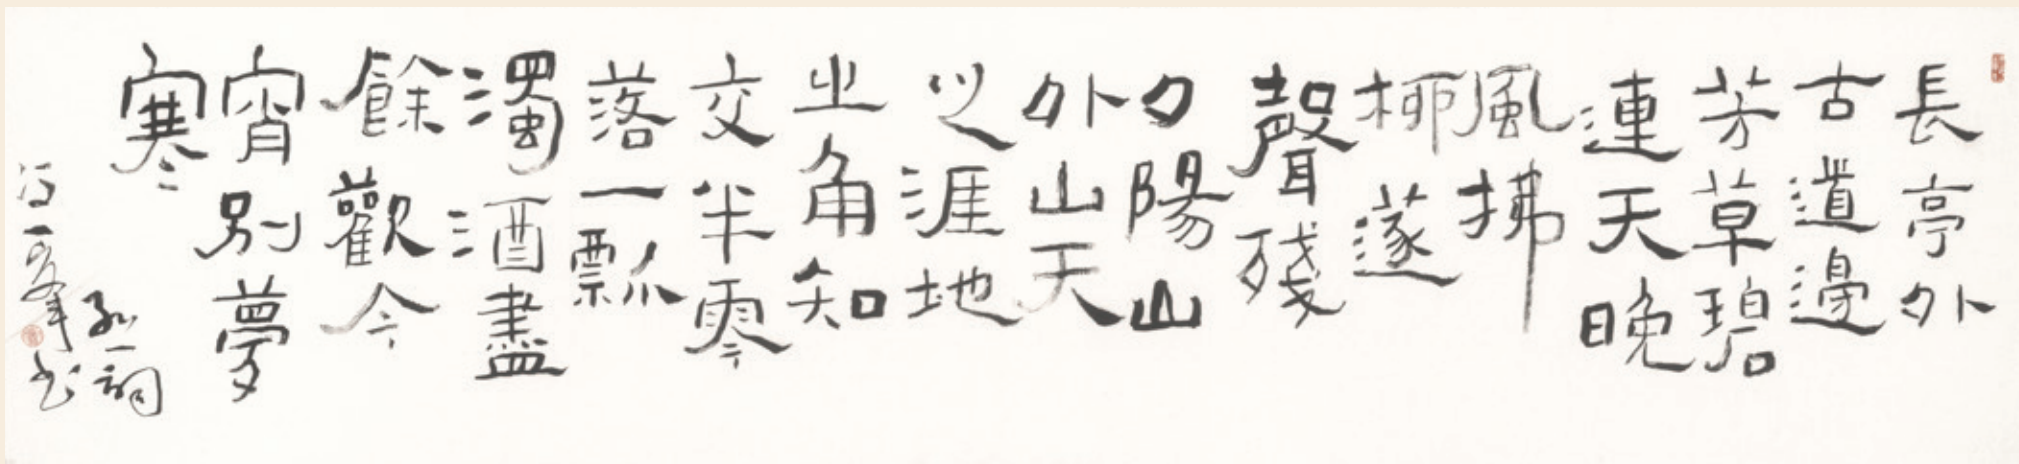 長亭外
古道邊
芳草碧
連天晚
風拂
柳遂
聲殘
夕陽山
外山天
之涯地
之角知
交半零
落一瓢
濁酒盡
餘歡今
宵別夢
寒
弘一詞
冯一书